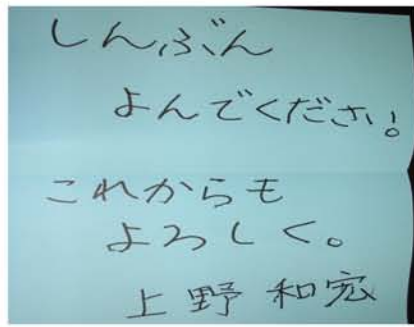 しんぶん
よんでください。
これからも
よろしく。
上野和宏